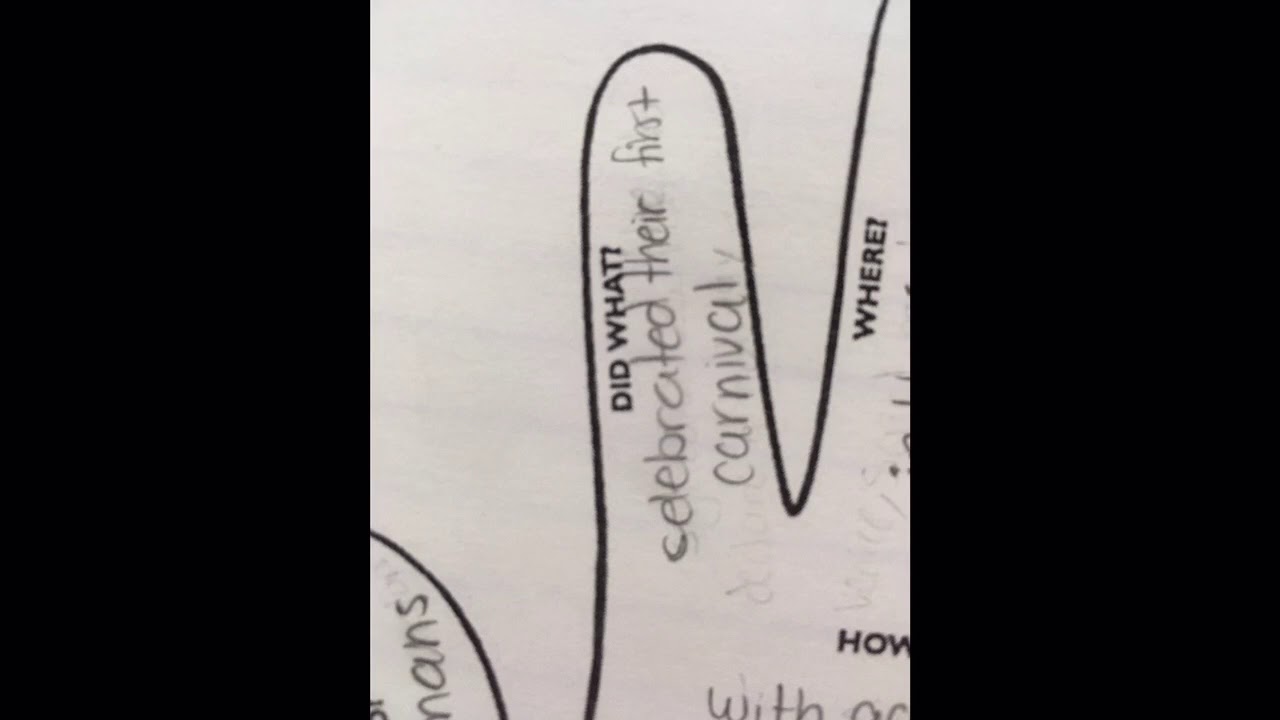 mans
DID WHAT?
celebrated their first
carnival
WHERE?
HOW
with